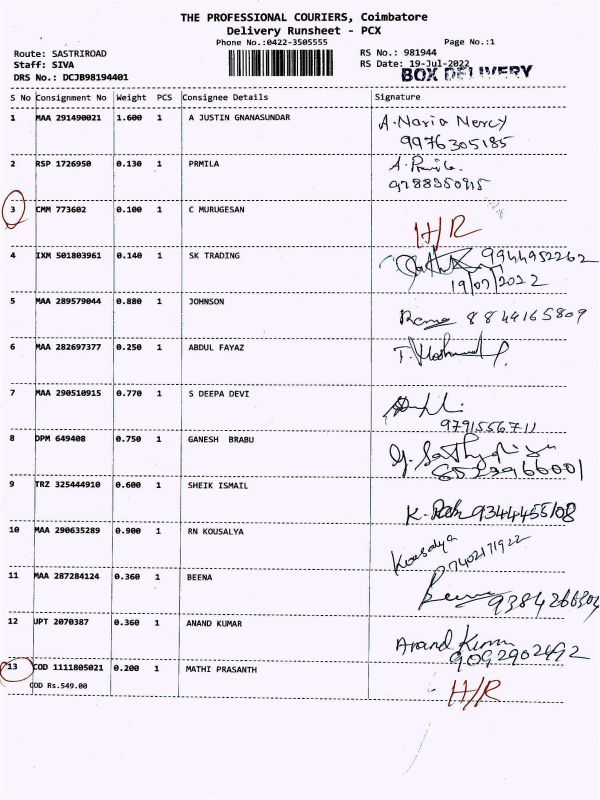 THE PROFESSIONAL COURIERS, Coimbatore
Delivery Runsheet - PCX
Phone No.:0422-3505555 Page No.:1
Route: SASTRIROAD RS No.: 981944
Staff: SIVA RS Date: 19-Jul-2022
DRS No.: DCJB98194401 BOX DELIVERY
S No Consignment No Weight PCS Consignee Details Signature
1 MAA 291490021 1.600 1 A JUSTIN GNANASUNDAR A. Maria Mercy
9976305185
2 RSP 1726950 0.130 1 PRMILA A. Prmila
9788350915
3 CMM 773602 0.100 1 C MURUGESAN H/R
4 IXM 501803961 0.140 1 SK TRADING 9944952262
19/07/2022
5 MAA 289579044 0.880 1 JOHNSON 8849165809
6 MAA 282697377 0.250 1 ABDUL FAYAZ
7 MAA 290510915 0.770 1 S DEEPA DEVI
9791556711
8 DPM 649408 0.750 1 GANESH BRABU
9 TRZ 325444910 0.600 1 SHEIK ISMAIL 9344455108
10 MAA 290635289 0.900 1 RN KOUSALYA Kousalya
7402171922
11 MAA 287284124 0.360 1 BEENA
12 UPT 2070387 0.360 1 ANAND KUMAR Anand Kumar
9092902492
13 COD 1111805021 0.200 1 MATHI PRASANTH H/R
COD Rs.549.00